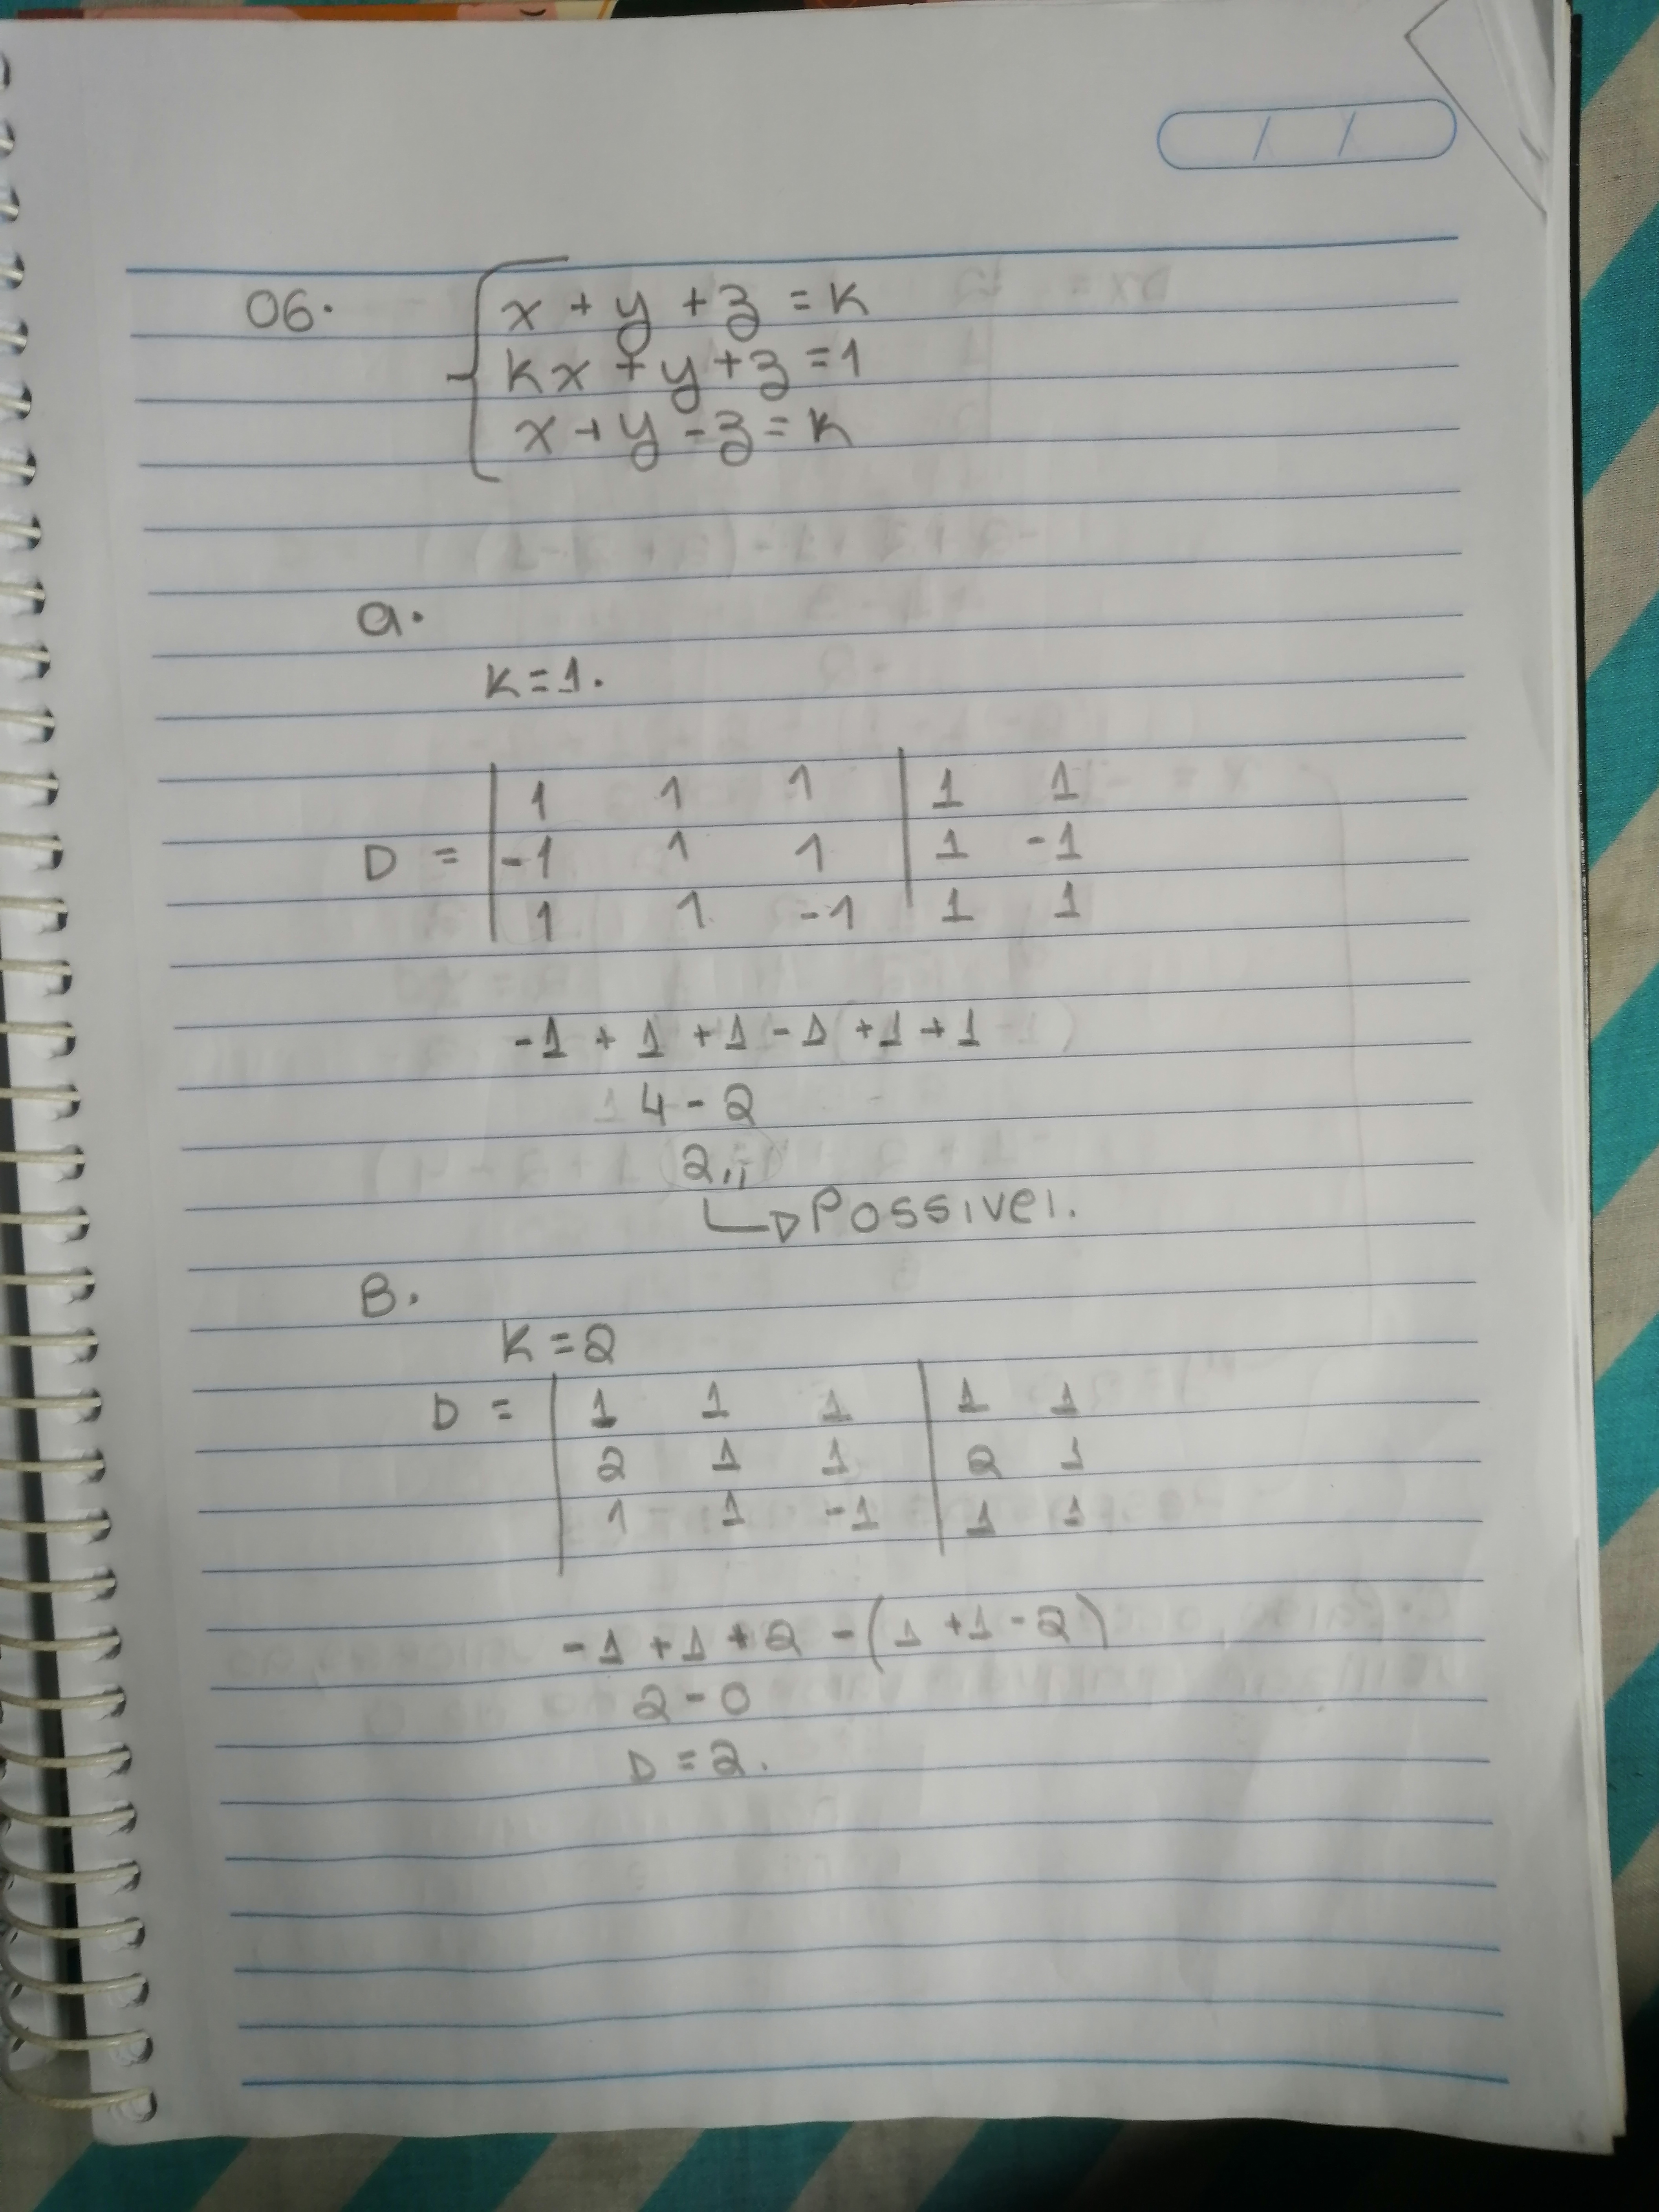 06.
x + y + z = K
Kx + y + z = 1
x + y - z = K
a.
K = 1.
1 1 1 | 1 1
D = | -1 1 1 | 1 -1
1 1 -1 | 1 1
-1 + 1 + 1 - 1 + 1 + 1
4 - 2
2,,
Possivel.
B.
K = 2
D = | 1 1 1 | 1 1
2 1 1 | 2 1
1 1 -1 | 1 1
-1 + 1 + 2 - (1 + 1 - 2)
2 - 0
D = 2.